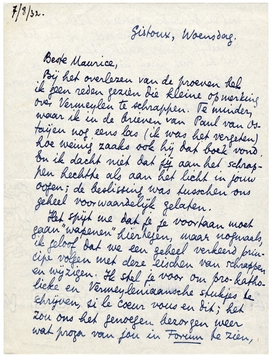 7/9/32.
Gistoux, Woensdag.
Beste Maurice,
Bij het overlezen van de proeven heb
ik geen reden gezien die kleine opmerking
over Vermeylen te schrappen. Te minder,
waar ik in de brieven van Paul van Os-
taijen nog eens las (ik was het vergeten)
hoe weinig zaaks ook hij dat boek vond.
En ik dacht niet dat jij aan het schrap-
pen hechtte als aan het licht in jouw
oogen; de beslissing was tusschen ons
geheel voorwaardelijk gelaten.
Het spijt me dat je je voortaan moet
gaan "wapenen" hiertegen, maar nogmaals,
ik geloof dat we een geheel verkeerd prin-
cipe volgen met deze eischen van schrappen
en wijzigen. Ik stel je voor om pro-katho-
lieke en Vermeyleniaansche stukjes te
schrijven, si le coeur vous en dit; het
zou ons het genoegen bezorgen weer
wat proza van jou in Forum te zien,